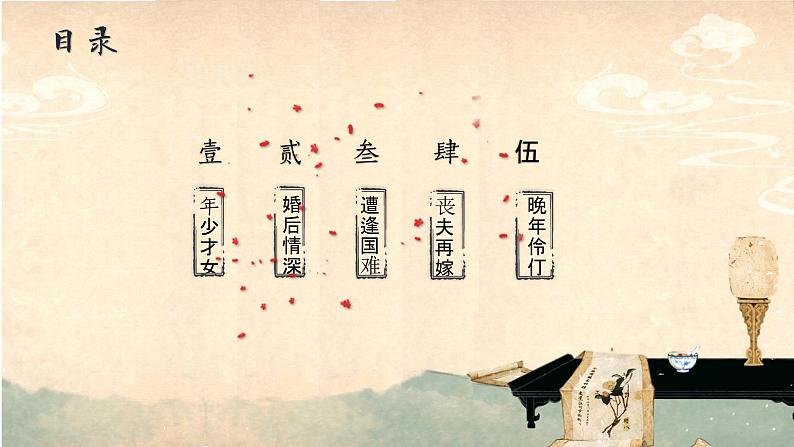 目录
壹
贰
叁
肆
伍
年少才女
婚后情深
遭逢国难
丧夫再嫁
晚年伶仃